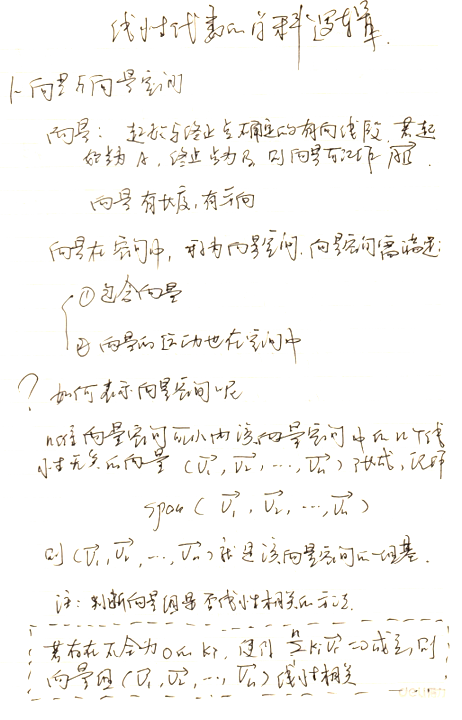 线性代数的学科逻辑
1. 向量与向量空间
向量：起点与终止点确定的有向线段. 若起
始点为 A，终止点为 B，则向量可记作 \overrightarrow{AB}.
向量有长度，有方向
向量在空间中，形成向量空间. 向量空间需满足:
① 包含向量
② 向量的运动也在空间中
? 如何表示向量空间呢
n维向量空间可以由该向量空间中的n个线
性无关的向量 (\vec{v_1}, \vec{v_2}, ..., \vec{v_n}) 张成，记作
span ( \vec{v_1}, \vec{v_2}, ..., \vec{v_n} )
则 (\vec{v_1}, \vec{v_2}, ..., \vec{v_n}) 就是该向量空间的一组基.
注: 判断向量组是否线性相关的方法
若存在不全为0的 k_i, 使得 \sum^{n} k_i \vec{v_i} = 0 成立, 则
向量组 (\vec{v_1}, \vec{v_2}, ..., \vec{v_n}) 线性相关